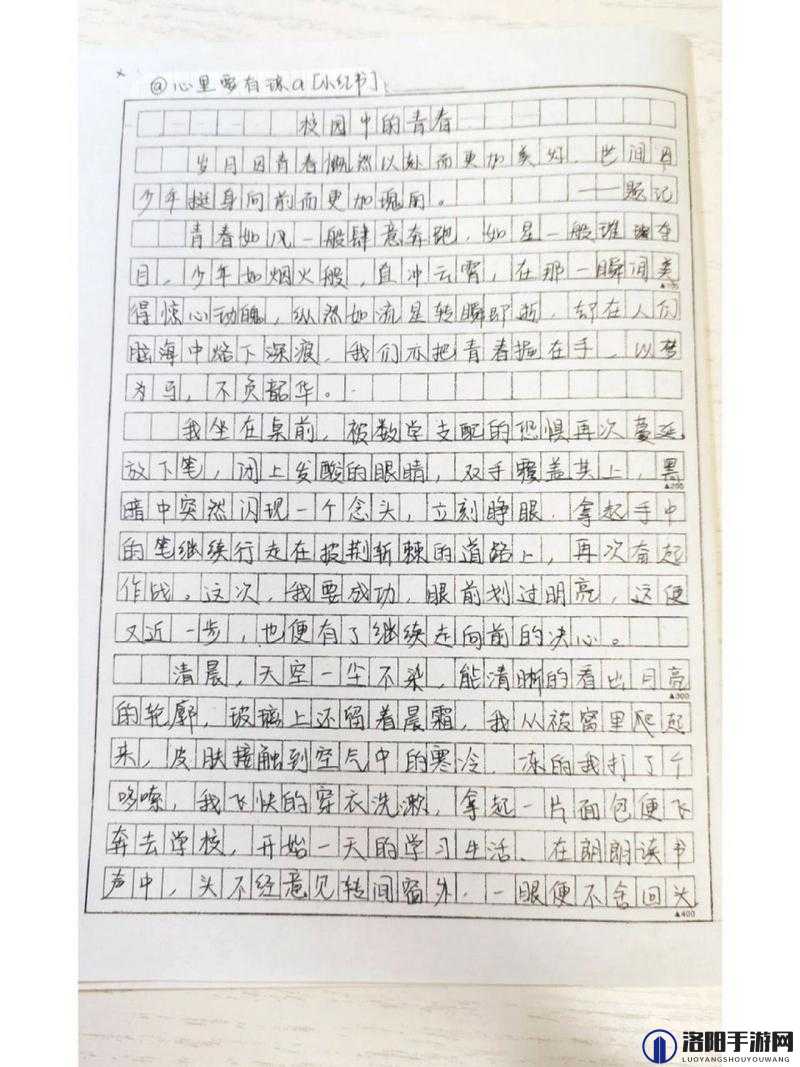 @心里要有球a[小红书]
校园中的青春
岁月因青春慨然以赴而更加美好，世间因
少年挺身向前而更加瑰丽。 ——题记
青春如风一般肆意奔跑，如星一般璀璨夺
目，少年如烟火般，直冲云霄，在那一瞬间美
得惊心动魄，纵然如流星转瞬即逝，却在人们
脑海中烙下深痕，我们亦把青春握在手，以梦
为马，不负韶华。
我坐在桌前，被数学支配的恐惧再次蔓延
放下笔，闭上发酸的眼睛，双手覆盖其上，黑
▲200
暗中突然闪现一个念头，立刻睁眼，拿起手中
的笔继续行走在披荆斩棘的道路上，再次奋起
作战。这次，我要成功，眼前划过明亮，这便
又近一步，也便有了继续走向前的决心。
清晨，天空一尘不染，能清晰的看出月亮
▲300
的轮廓，玻璃上还留着晨霜，我从被窝里爬起
来，皮肤接触到空气中的寒冷，冻的我打了个
哆嗦，我飞快的穿衣洗漱，拿起一片面包便飞
奔去学校，开始一天的学习生活、在朗朗读书
声中，头不经意见转间窗外，一眼便不舍回头
▲400
洛阳手游网
LUOYANGSHOUYOUWANG